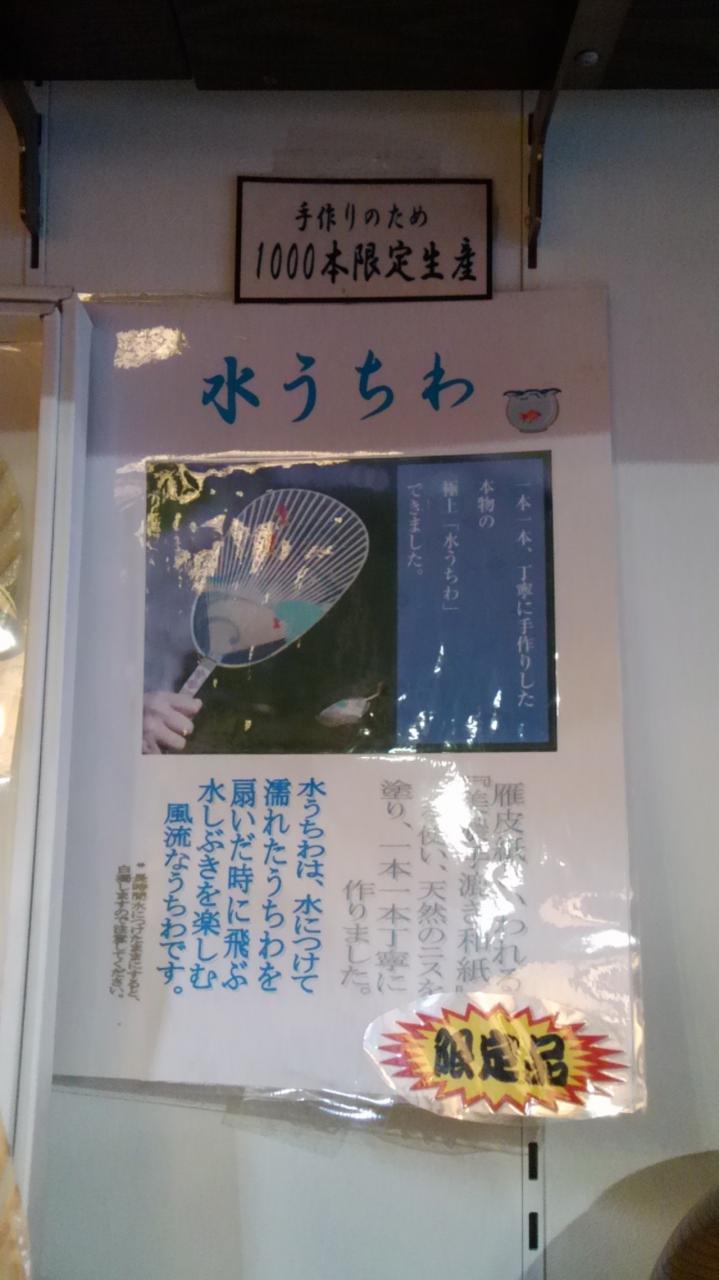 手作りのため
1000本限定生産
水うちわ
一本一本、丁寧に手作りした
本物の
極上「水うちわ」
できました。
雁皮紙といわれる
手漉き和紙』
を使い、天然のニスを
塗り、一本一本丁寧に
作りました。
水うちわは、水につけて
濡れたうちわを
扇いだ時に飛ぶ
水しぶきを楽しむ
風流なうちわです。
＊長時間水につけたままにすると、
白濁しますので注意してください。
限定品